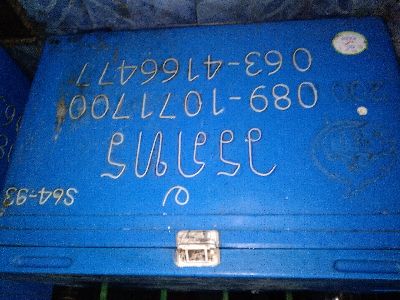 S64-93
วรภัทร
089-1071700
063-4166477